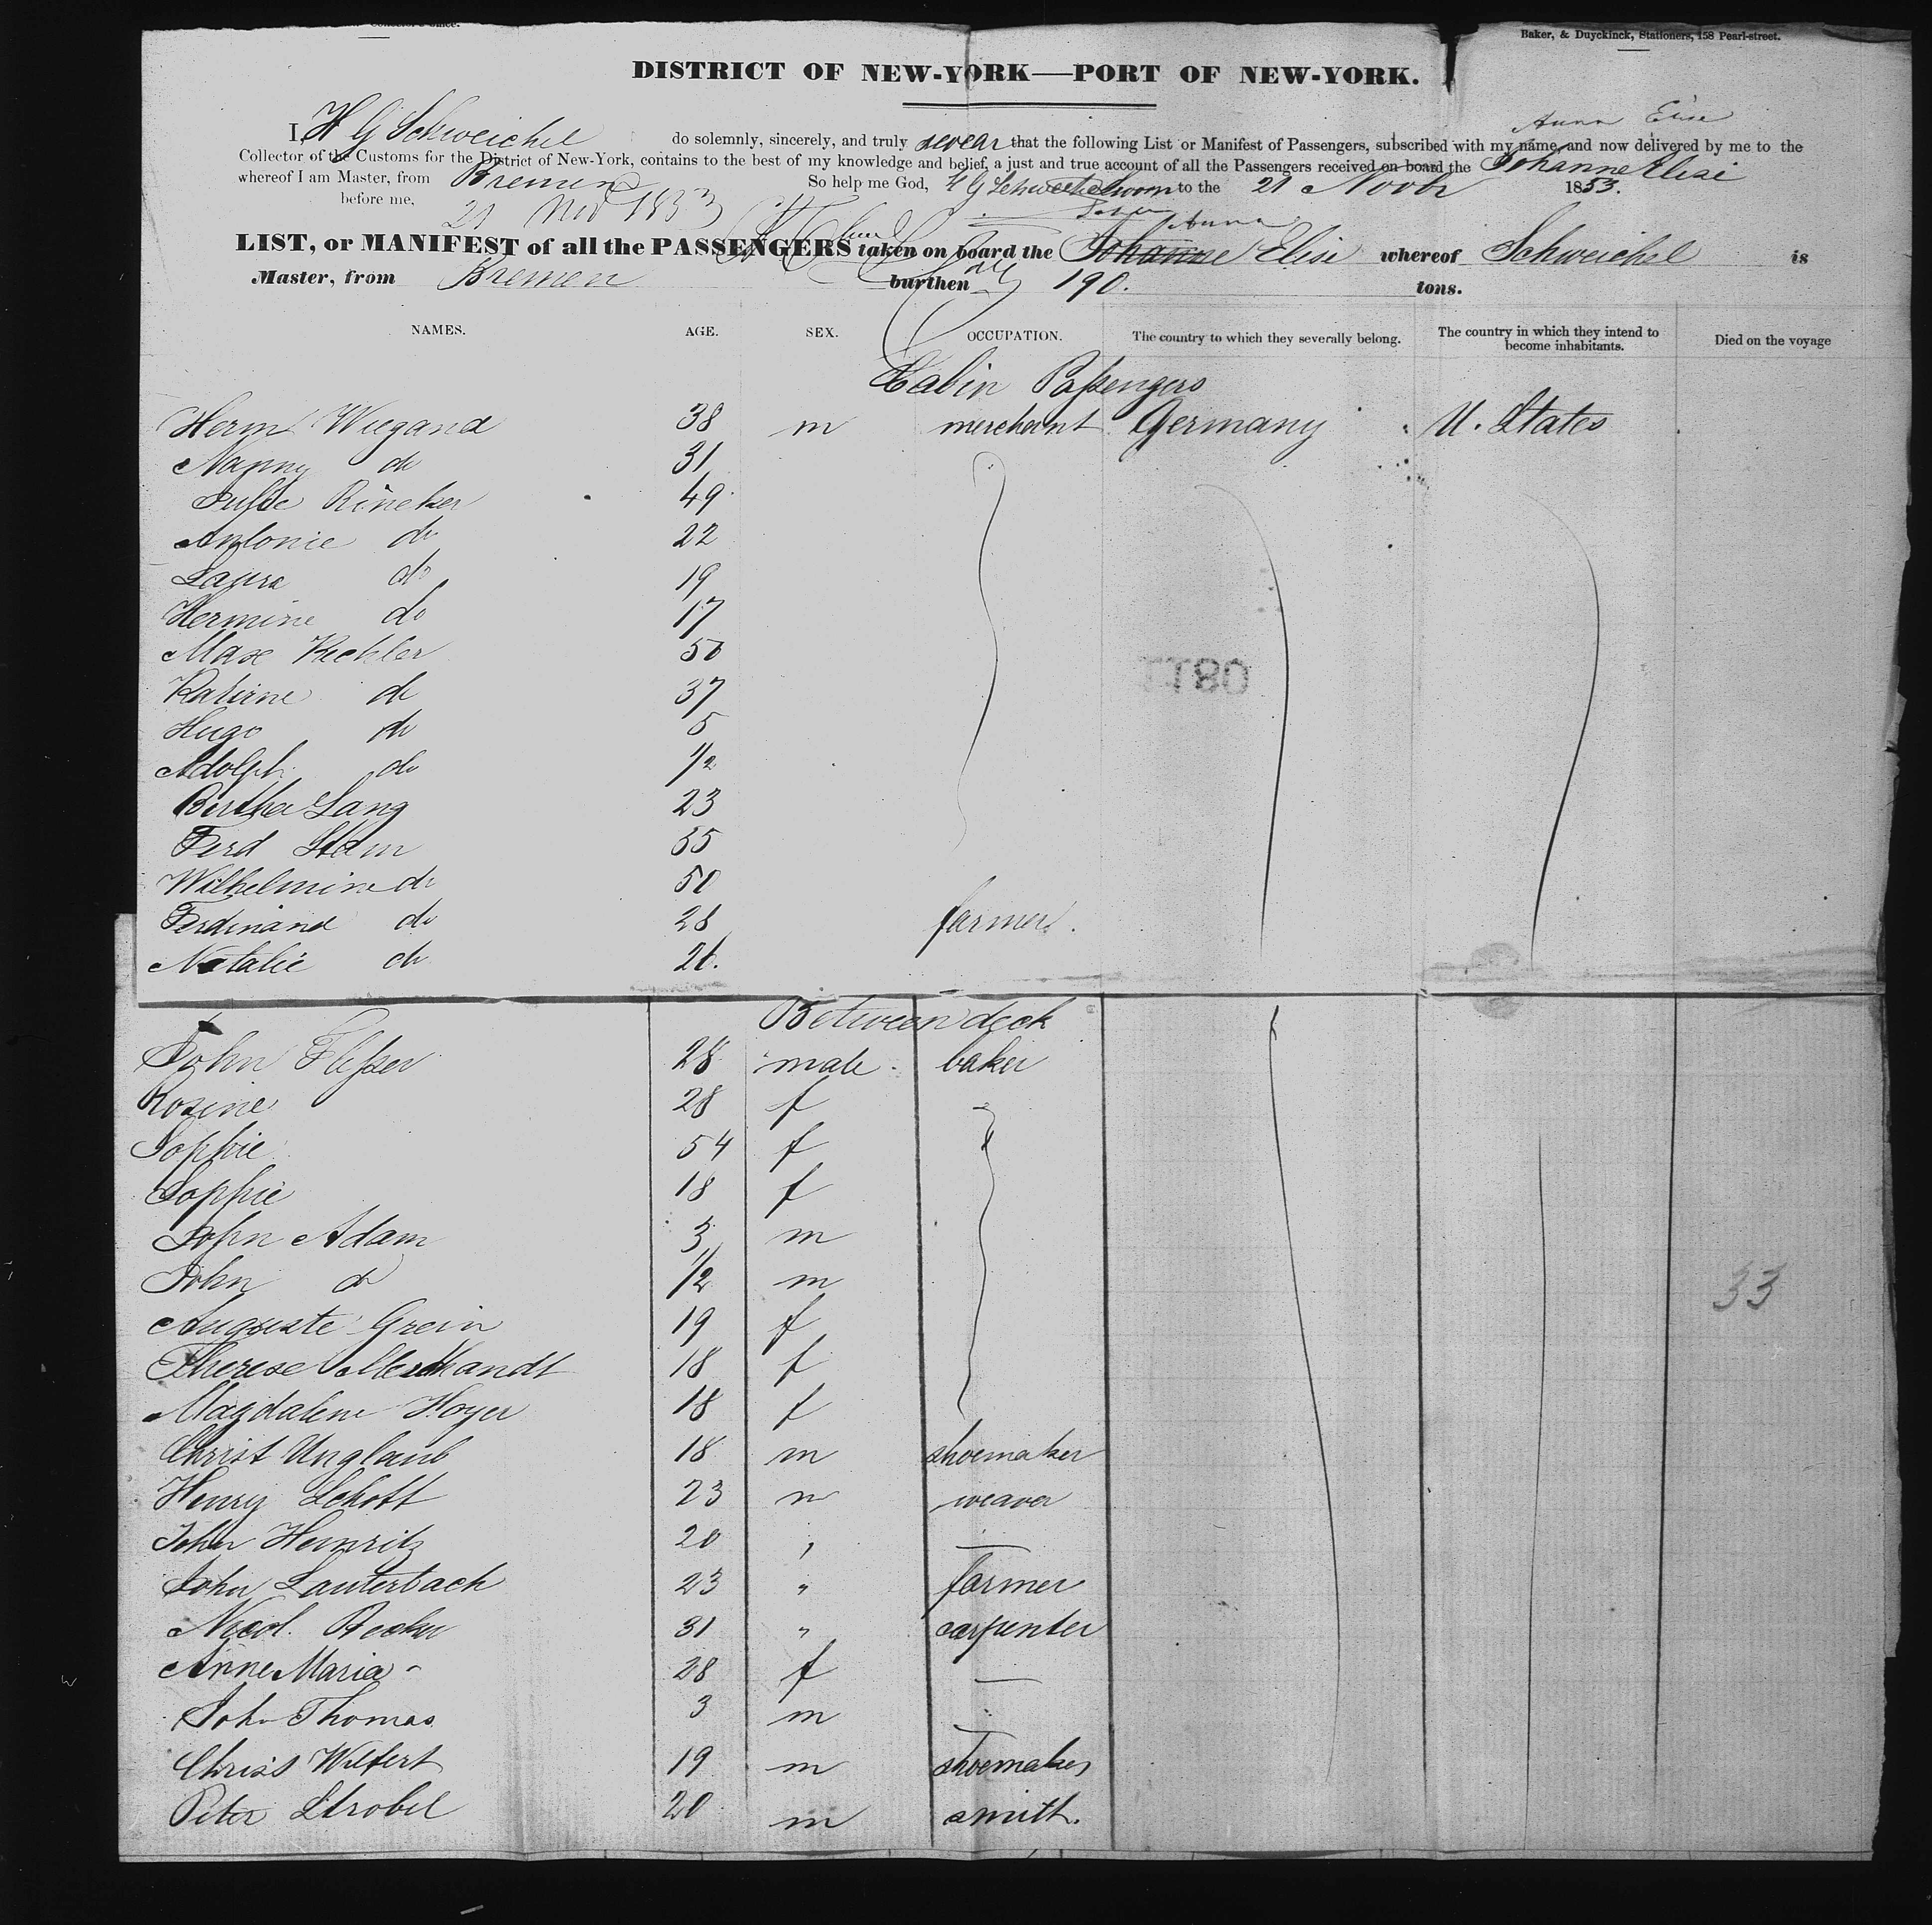 Collector's Office.
Baker, & Duyckinck, Stationers, 158 Pearl-street.
DISTRICT OF NEW-YORK—PORT OF NEW-YORK.
Anna Elise
I, H G Schweichel do solemnly, sincerely, and truly swear that the following List or Manifest of Passengers, subscribed with my name, and now delivered by me to the
Collector of the Customs for the District of New-York, contains to the best of my knowledge and belief, a just and true account of all the Passengers received on board the Johanne Elise
whereof I am Master, from Bremen So help me God, H G Schweichel Sworn to the 21 Novbr 1853.
before me, 21 Nov 1853
Anna
LIST, or MANIFEST of all the PASSENGERS taken on board the Johanne Elise whereof Schweichel is
Master, from Bremen burthen 190. tons.
NAMES. AGE. SEX. OCCUPATION. The country to which they severally belong. The country in which they intend to become inhabitants. Died on the voyage
Cabin Passengers
Herm Wiegand 38 m merchant Germany U. States
Nanny do 31
Rineker 49
Antonie do 22
Laura do 19
Hermine do 17
Max Kechler 50
Katirne do 37
Hugo do 5
Adolph do 1/2
1180
Bertha Lang 23
Ferd Stam 55
Wilhelmine do 50
Ferdinand do 28 farmer.
Natalie do 26.
Between deck
John Flesser 28 male baker
Rosine 28 f
Sophie 54 f
Sophie 18 f
John Adam 3 m
John do 1/2 m
33
Auguste Grein 19 f
Therese 18 f
Magdalene Hoyer 18 f
Christ Unglaub 18 m shoemaker
Henry Schott 23 m weaver
John Heinritz 20 " —
John Lauterbach 23 " farmer
Nicol. Becker 31 " carpenter
Anne Maria - 28 f —
Joh Thomas 3 m
Christ Wilfert 19 m shoemaker
Peter Strobel 20 m smith.